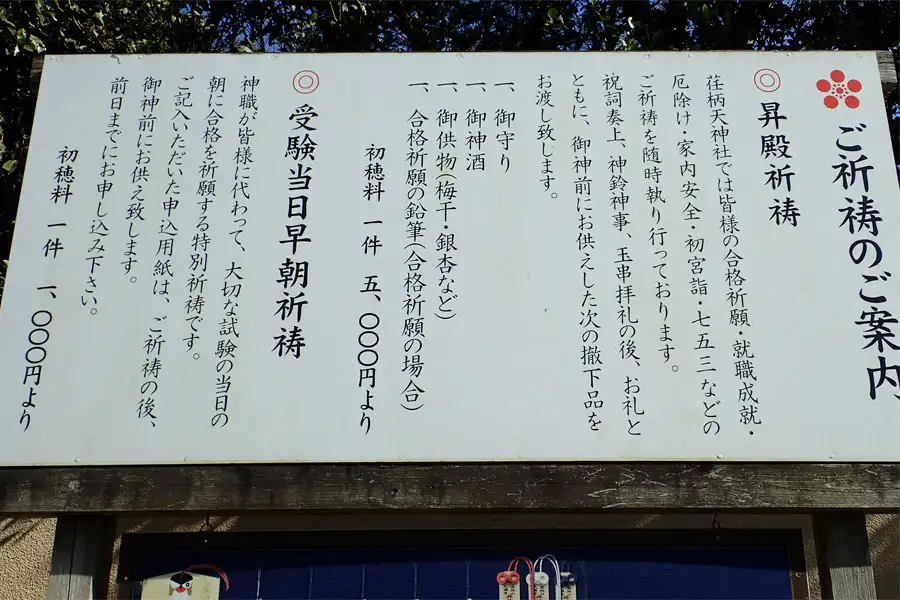 ご祈祷のご案内
昇殿祈祷
荏柄天神社では皆様の合格祈願・就職成就・
厄除け・家内安全・初宮詣・七五三などの
ご祈祷を随時執り行っております。
祝詞奏上、神鈴神事、玉串拝礼の後、お礼と
ともに、御神前にお供えした次の撤下品を
お渡し致します。
一、御守り
一、御神酒
一、御供物(梅干・銀杏など)
一、合格祈願の鉛筆(合格祈願の場合)
初穂料 一件 五、〇〇〇円より
受験当日早朝祈祷
神職が皆様に代わって、大切な試験の当日の
朝に合格を祈願する特別祈祷です。
ご記入いただいた申込用紙は、ご祈祷の後、
御神前にお供え致します。
前日までにお申し込み下さい。
初穂料 一件 一、〇〇〇円より